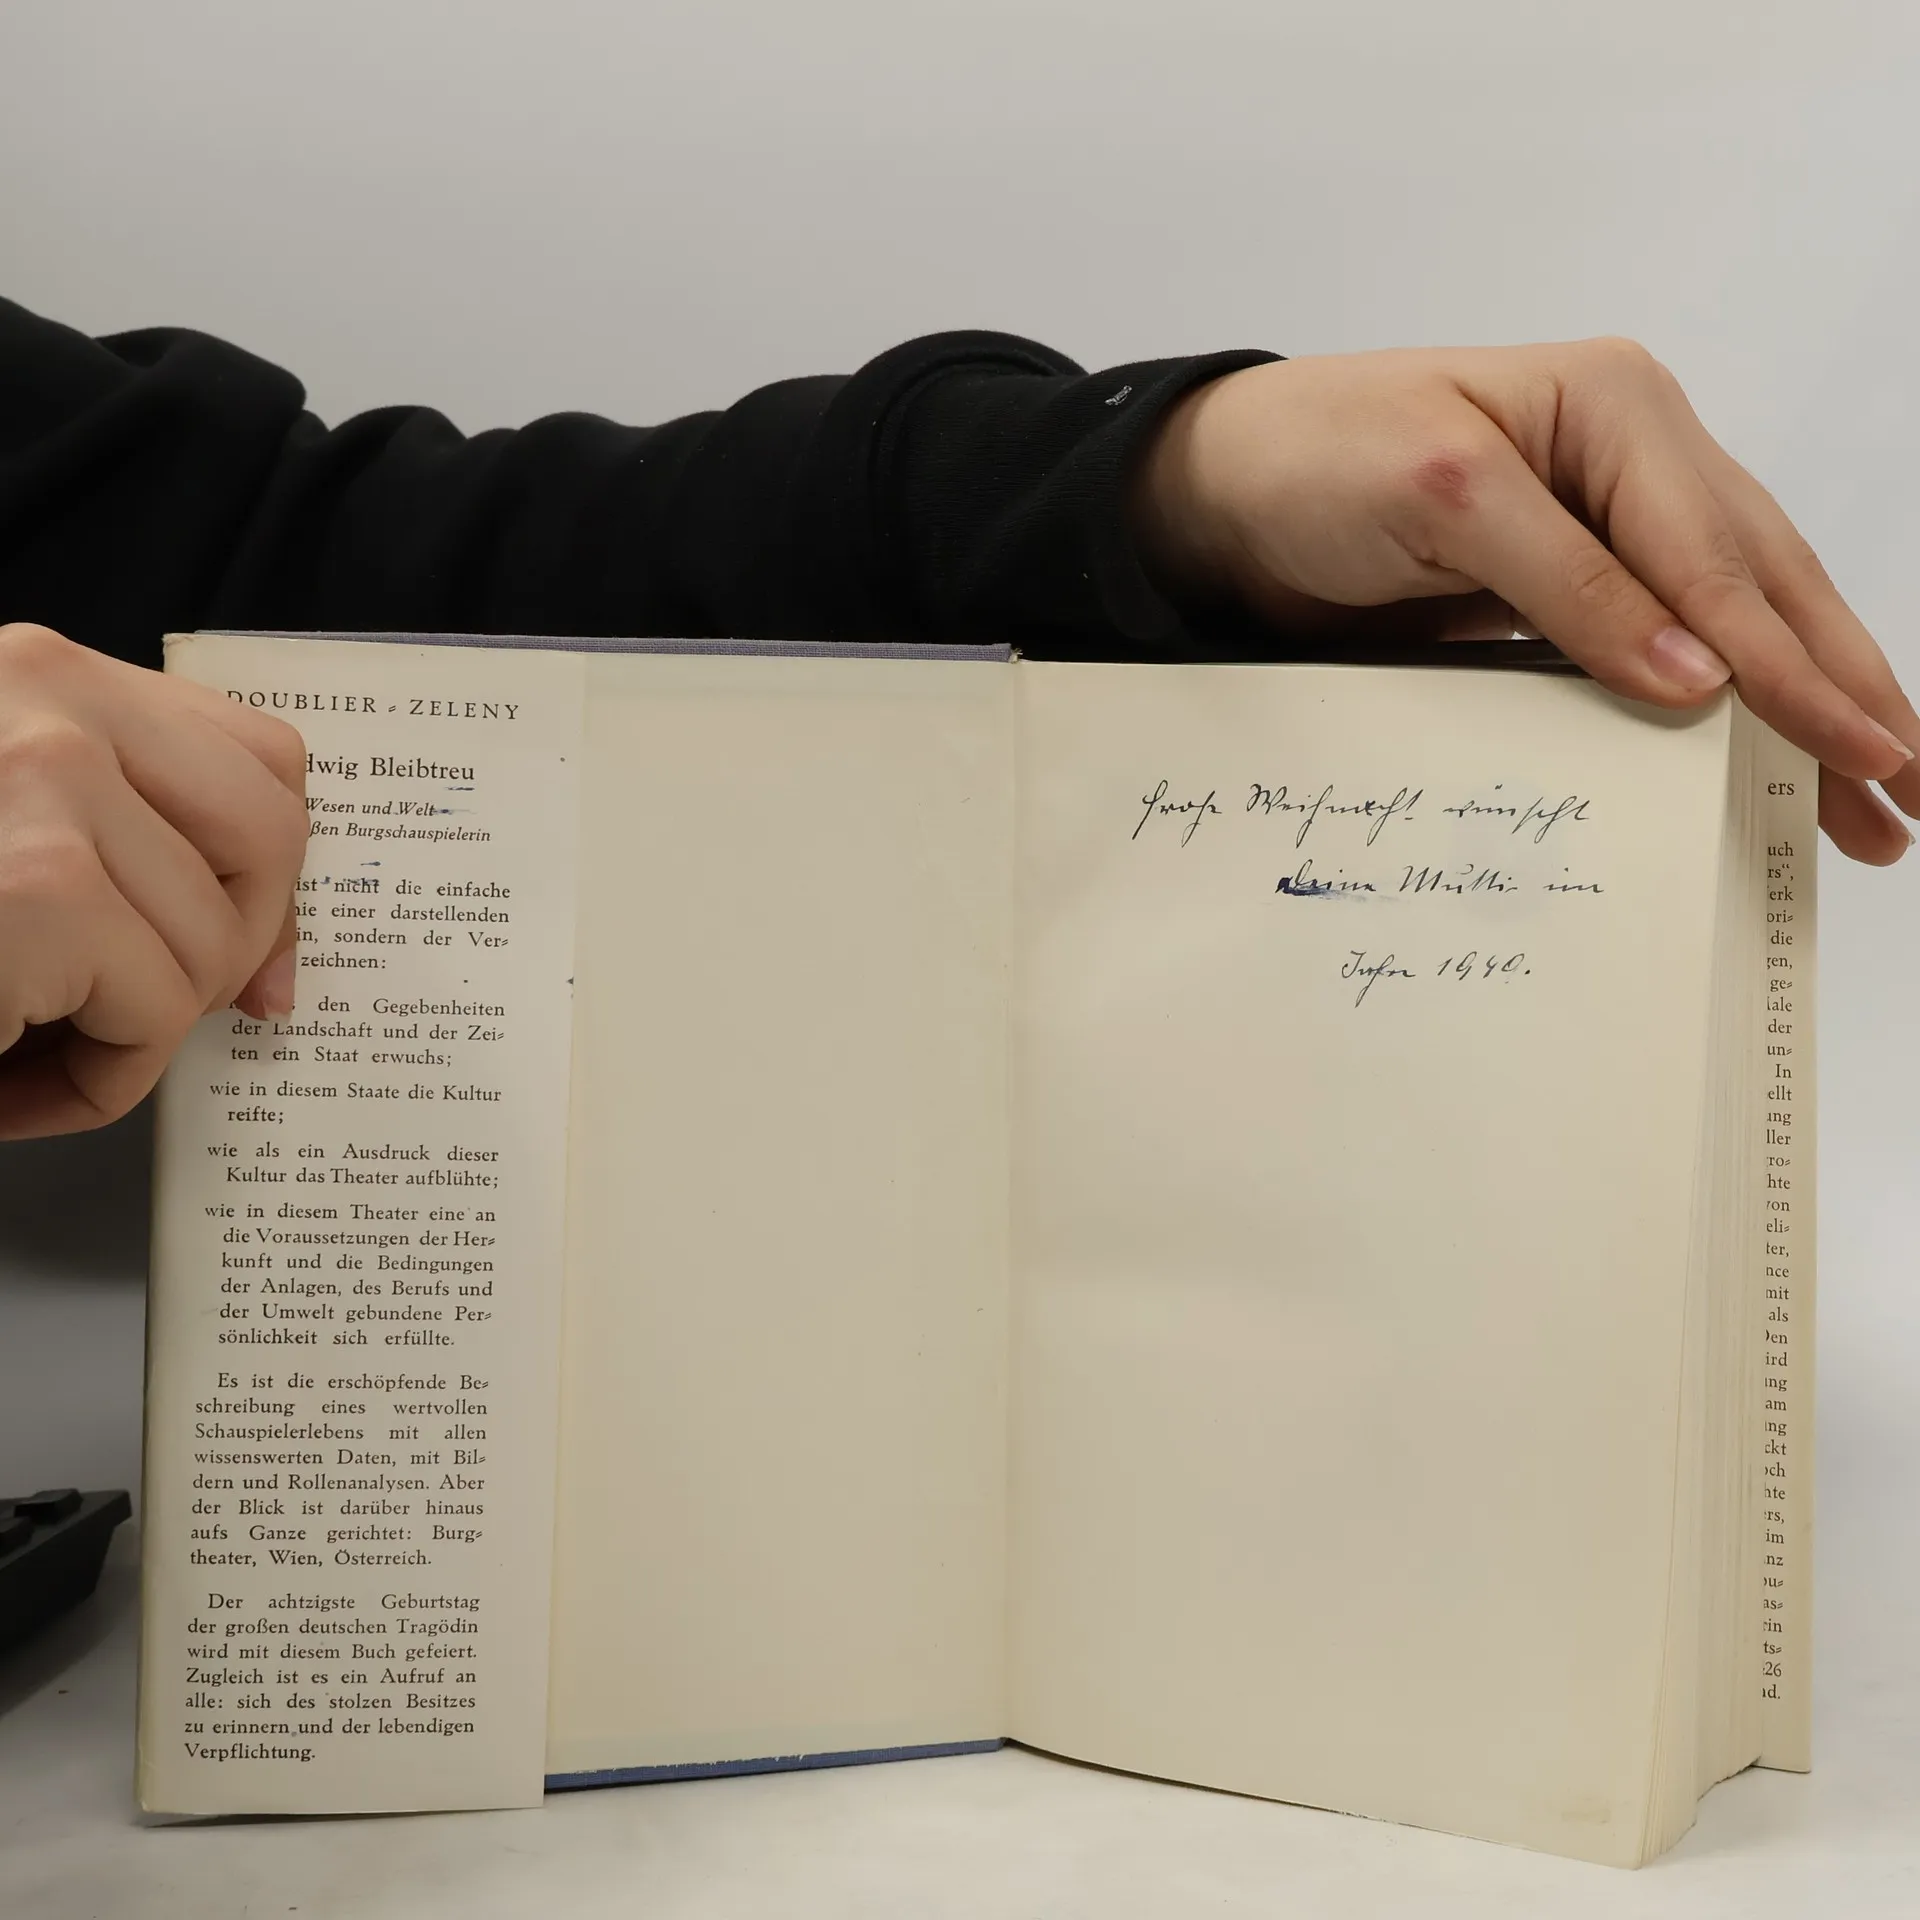 DOUBLIER ⸗ ZELENY
dwig Bleibtreu
Wesen und Welt
ßen Burgschauspielerin
ist nicht die einfache
nie einer darstellenden
in, sondern der Ver⸗
zeichnen:
den Gegebenheiten
der Landschaft und der Zei⸗
ten ein Staat erwuchs;
wie in diesem Staate die Kultur
reifte;
wie als ein Ausdruck dieser
Kultur das Theater aufblühte;
wie in diesem Theater eine an
die Voraussetzungen der Her⸗
kunft und die Bedingungen
der Anlagen, des Berufs und
der Umwelt gebundene Per⸗
sönlichkeit sich erfüllte.
Es ist die erschöpfende Be⸗
schreibung eines wertvollen
Schauspielerlebens mit allen
wissenswerten Daten, mit Bil⸗
dern und Rollenanalysen. Aber
der Blick ist darüber hinaus
aufs Ganze gerichtet: Burg⸗
theater, Wien, Österreich.
Der achtzigste Geburtstag
der großen deutschen Tragödin
wird mit diesem Buch gefeiert.
Zugleich ist es ein Aufruf an
alle: sich des stolzen Besitzes
zu erinnern und der lebendigen
Verpflichtung.
frohe Weihnacht wünscht
Deine Mutti im
Jahre 1949.
ers
uch
rs“,
erk
ori⸗
die
gen,
ge⸗
iale
der
un⸗
In
ellt
ung
ller
ro⸗
hte
von
eli⸗
ter,
nce
mit
als
Den
ird
ung
am
ung
ckt
och
hte
rs,
im
nz
ou⸗
as⸗
rin
ts⸗
26
nd.